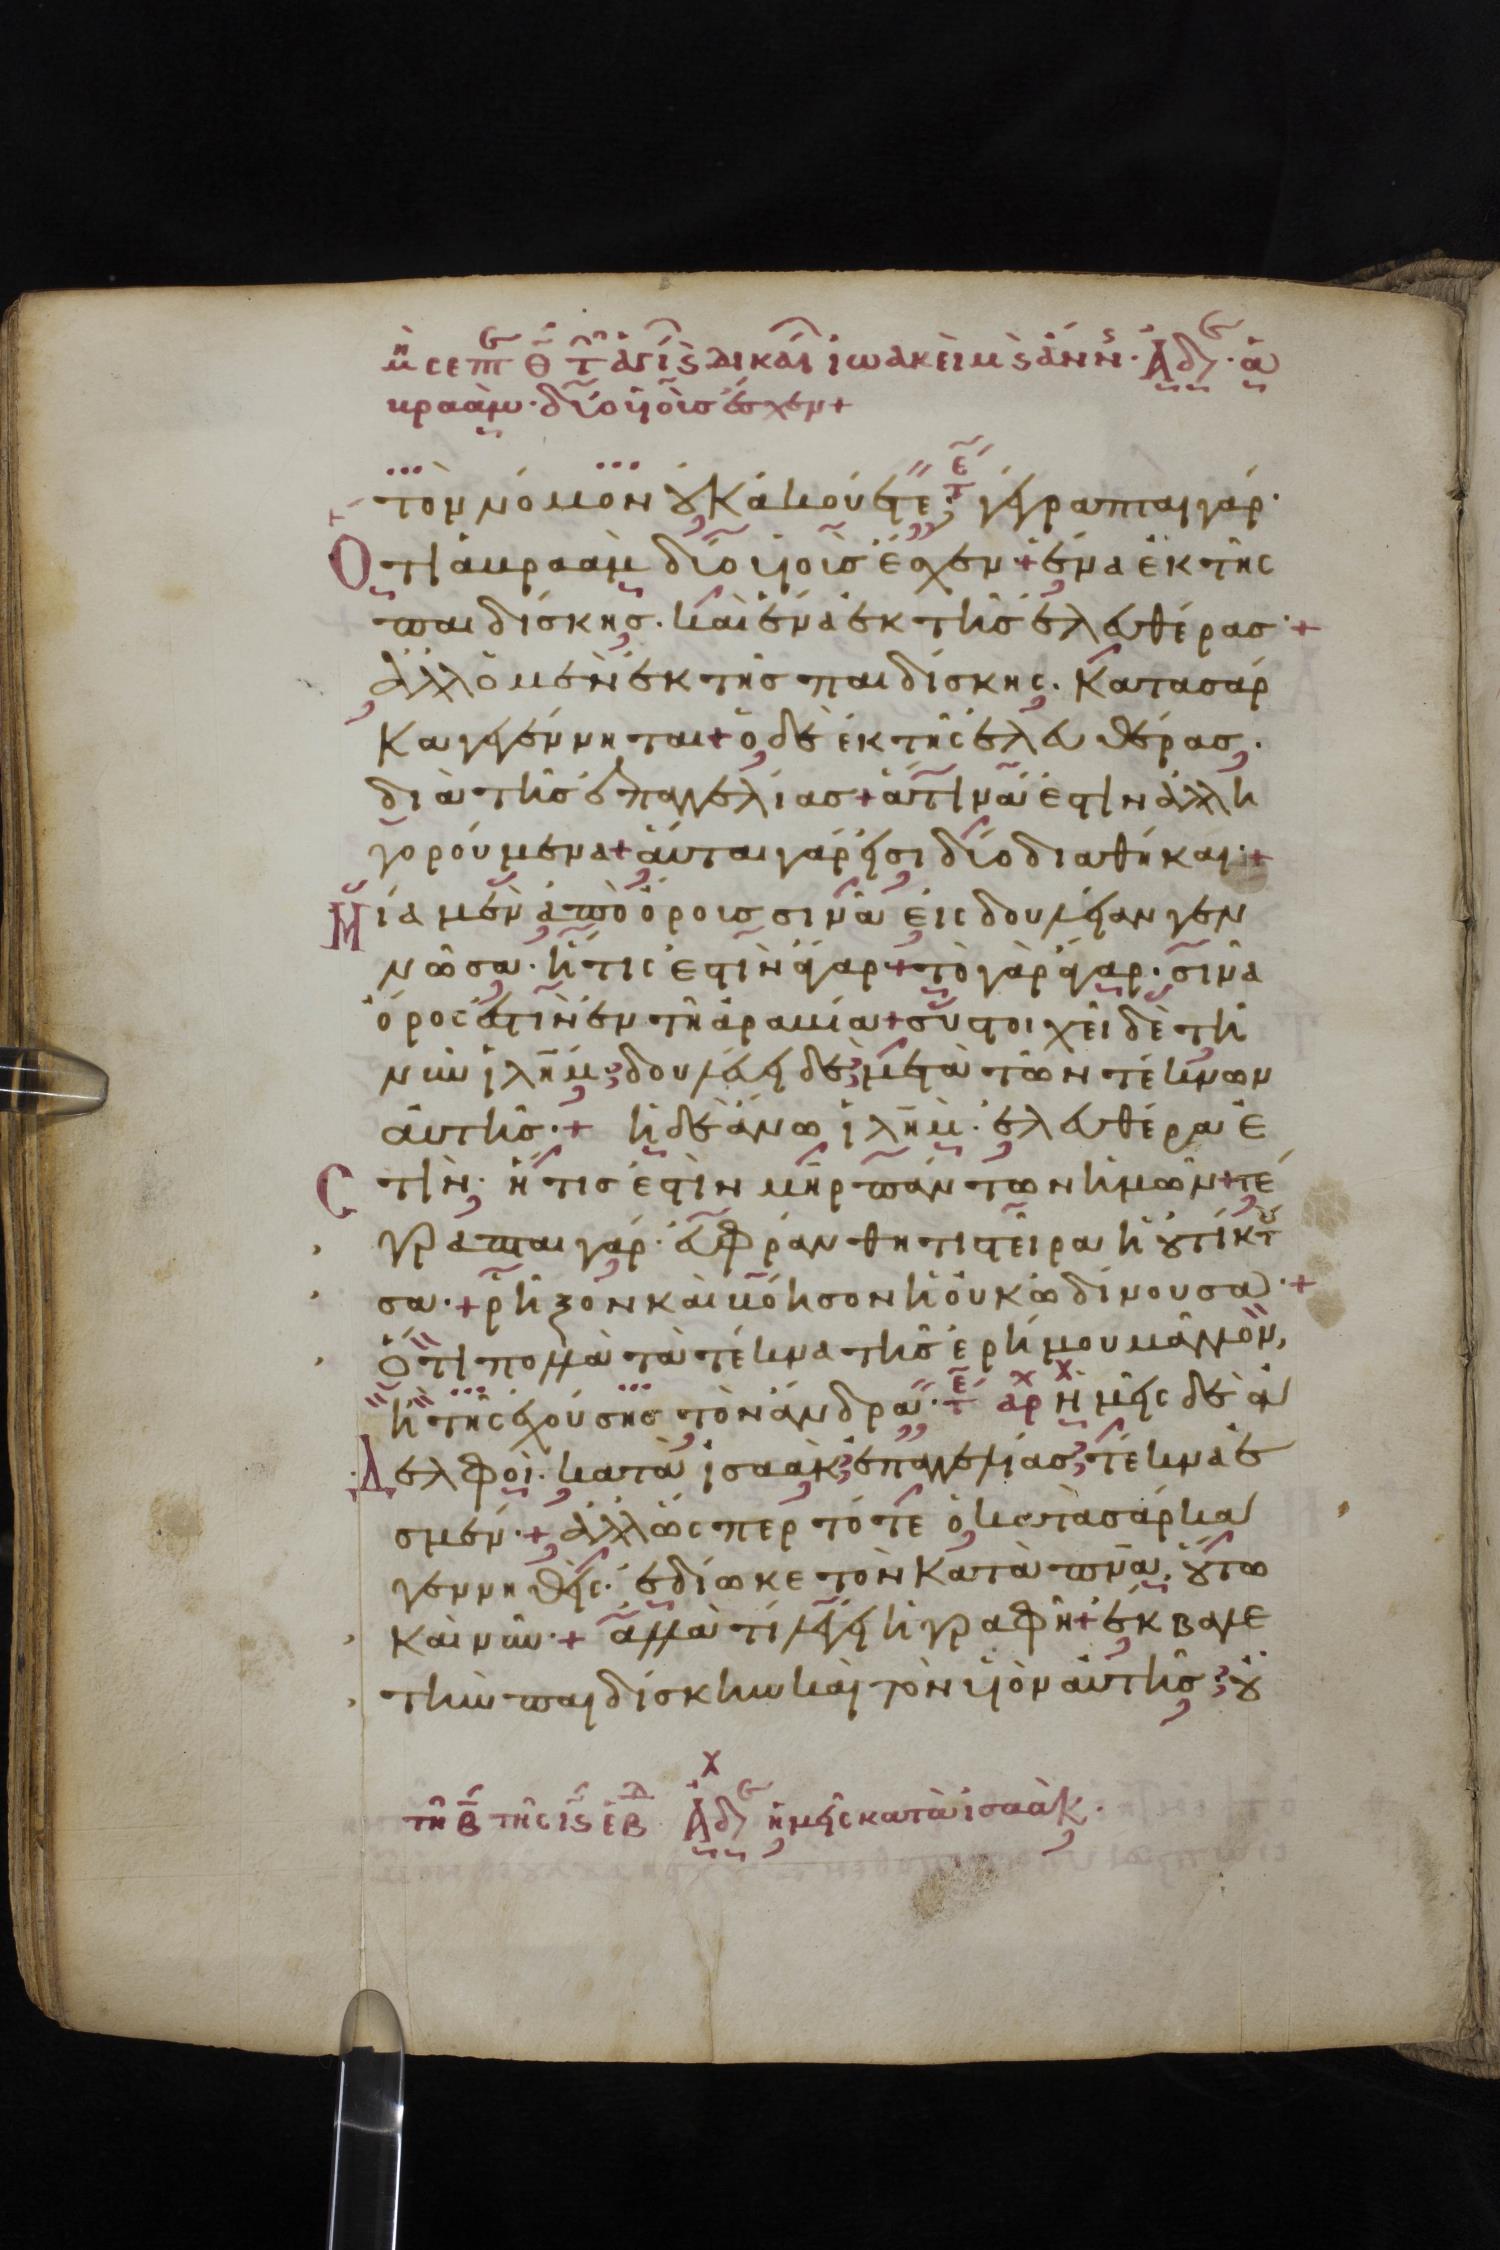 μη σεπτ θ τ αγι ς δικαι ιωακειμ ς ανν · Αδ · ἀ
βραάμ · δύο υἱοὺσ ἔσχεν +
τὸν νόμον οὐκ ἀκούετε · γέγραπται γάρ ·
Οτι ἀβραὰμ δύο υἱοὺσ ἔσχεν + ἕνα ἐκ τῆς
παιδίσκησ · καὶ ἕνα ἐκ τῆσ ἐλευθέρασ · +
ἀλλ ὁ μὲν ἐκ τῆσ παιδίσκης · κατὰ σάρ
κα γεγέννηται + ὁ δὲ ἐκ τῆς ἐλευθέρασ ·
διὰ τῆσ ἐπαγγελίασ + ἅτινά ἐστιν ἀλλη
γορούμενα + αὗται γάρ εἰσι δύο διαθῆκαι · +
Μία μὲν ἀπὸ ὄρουσ σινᾶ εἰς δουλείαν γεν
νῶσα · ἥτις ἐστὶν ἄγαρ + τὸ γὰρ ἄγαρ · σινᾶ
ὄρος ἐστὶν ἐν τῆ ἀραβία + συστοιχεῖ δὲ τῆ
νῦν ἰλημ · δουλεύει δὲ μετὰ τῶν τέκνων
αὐτῆσ · + ἡ δὲ ἄνω ἰλημ · ἐλευθέρα ἐ
στὶν · ἥτισ ἐστὶν μηρ πάντων ἡμῶν + γέ
γραπται γάρ · εὐφράνθητι στεῖρα ἡ οὐ τίκτου
σα · + ῥῆξον καὶ βόησον ἡ οὐκ ὠδίνουσα · +
ὅτι πολλὰ τὰ τέκνα τῆσ ἐρήμου μᾶλλον,
ἢ τῆς ἐχούσησ τὸν ἄνδρα · τε αρχ ἡμεῖς δὲ ἀ
Δελφοὶ · κατὰ ἰσαὰκ ἐπαγγελίασ τέκνα ἐ
σμέν · + ἀλλ ὥςπερ τότε ὁ κατὰ σάρκα
γεννηθεὶς · ἐδίωκε τὸν κατὰ πνα · οὕτω
καὶ νῦν · + ἀλλὰ τί λέγει ἡ γραφὴ + ἔκβαλε
τὴν παιδίσκην καὶ τὸν υἱὸν αὐτῆσ · οὐ
τῆ β τῆς ις ἑβδ Αδ ἡμεῖς κατὰ ἰσαὰκ ·